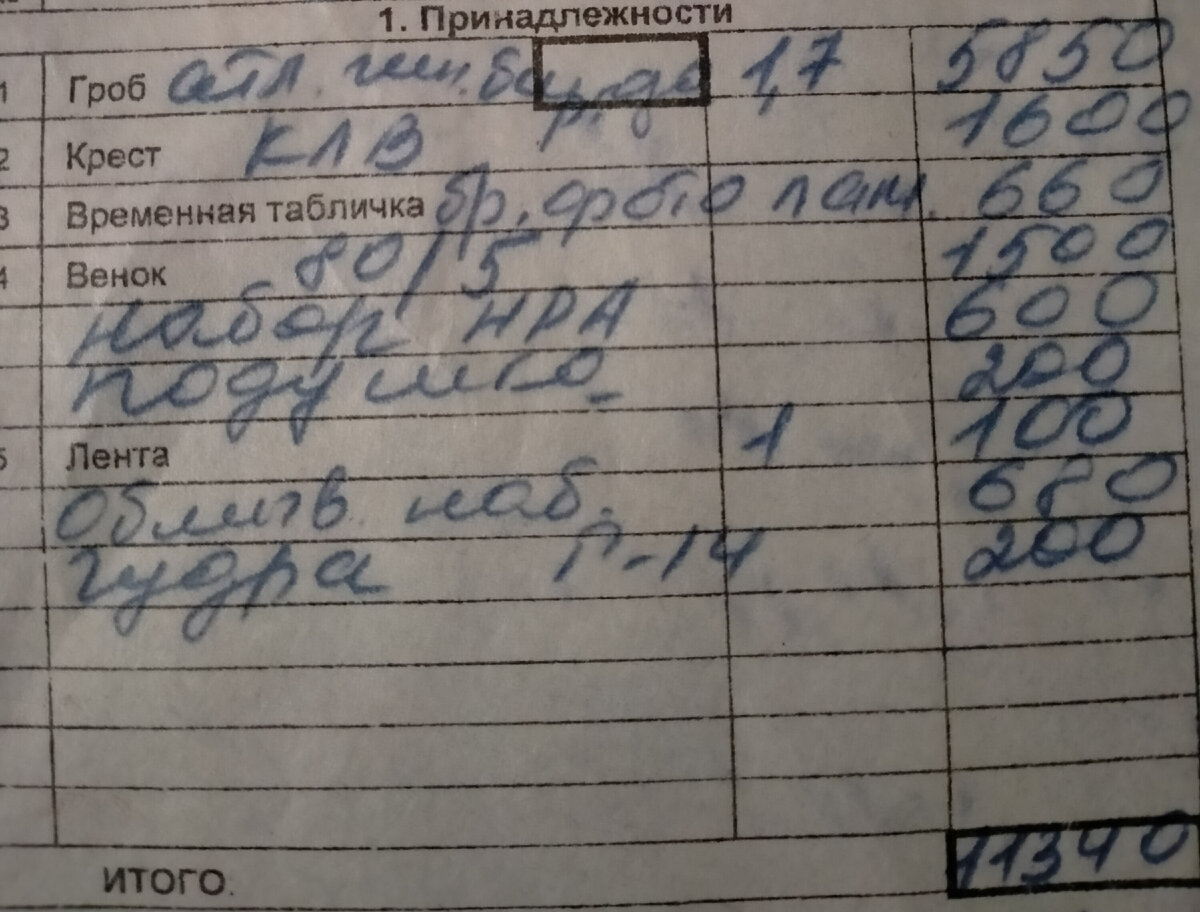 1. Принадлежности
1 Гроб атл. 1,7 5850
2 Крест КЛВ 1600
3 Временная табличка бр. фото 660
4 Венок 80/5 1500
набор НРА 600
подушка 200
5 Лента 1 100
наб. 680
пудра 200
ИТОГО. 11340